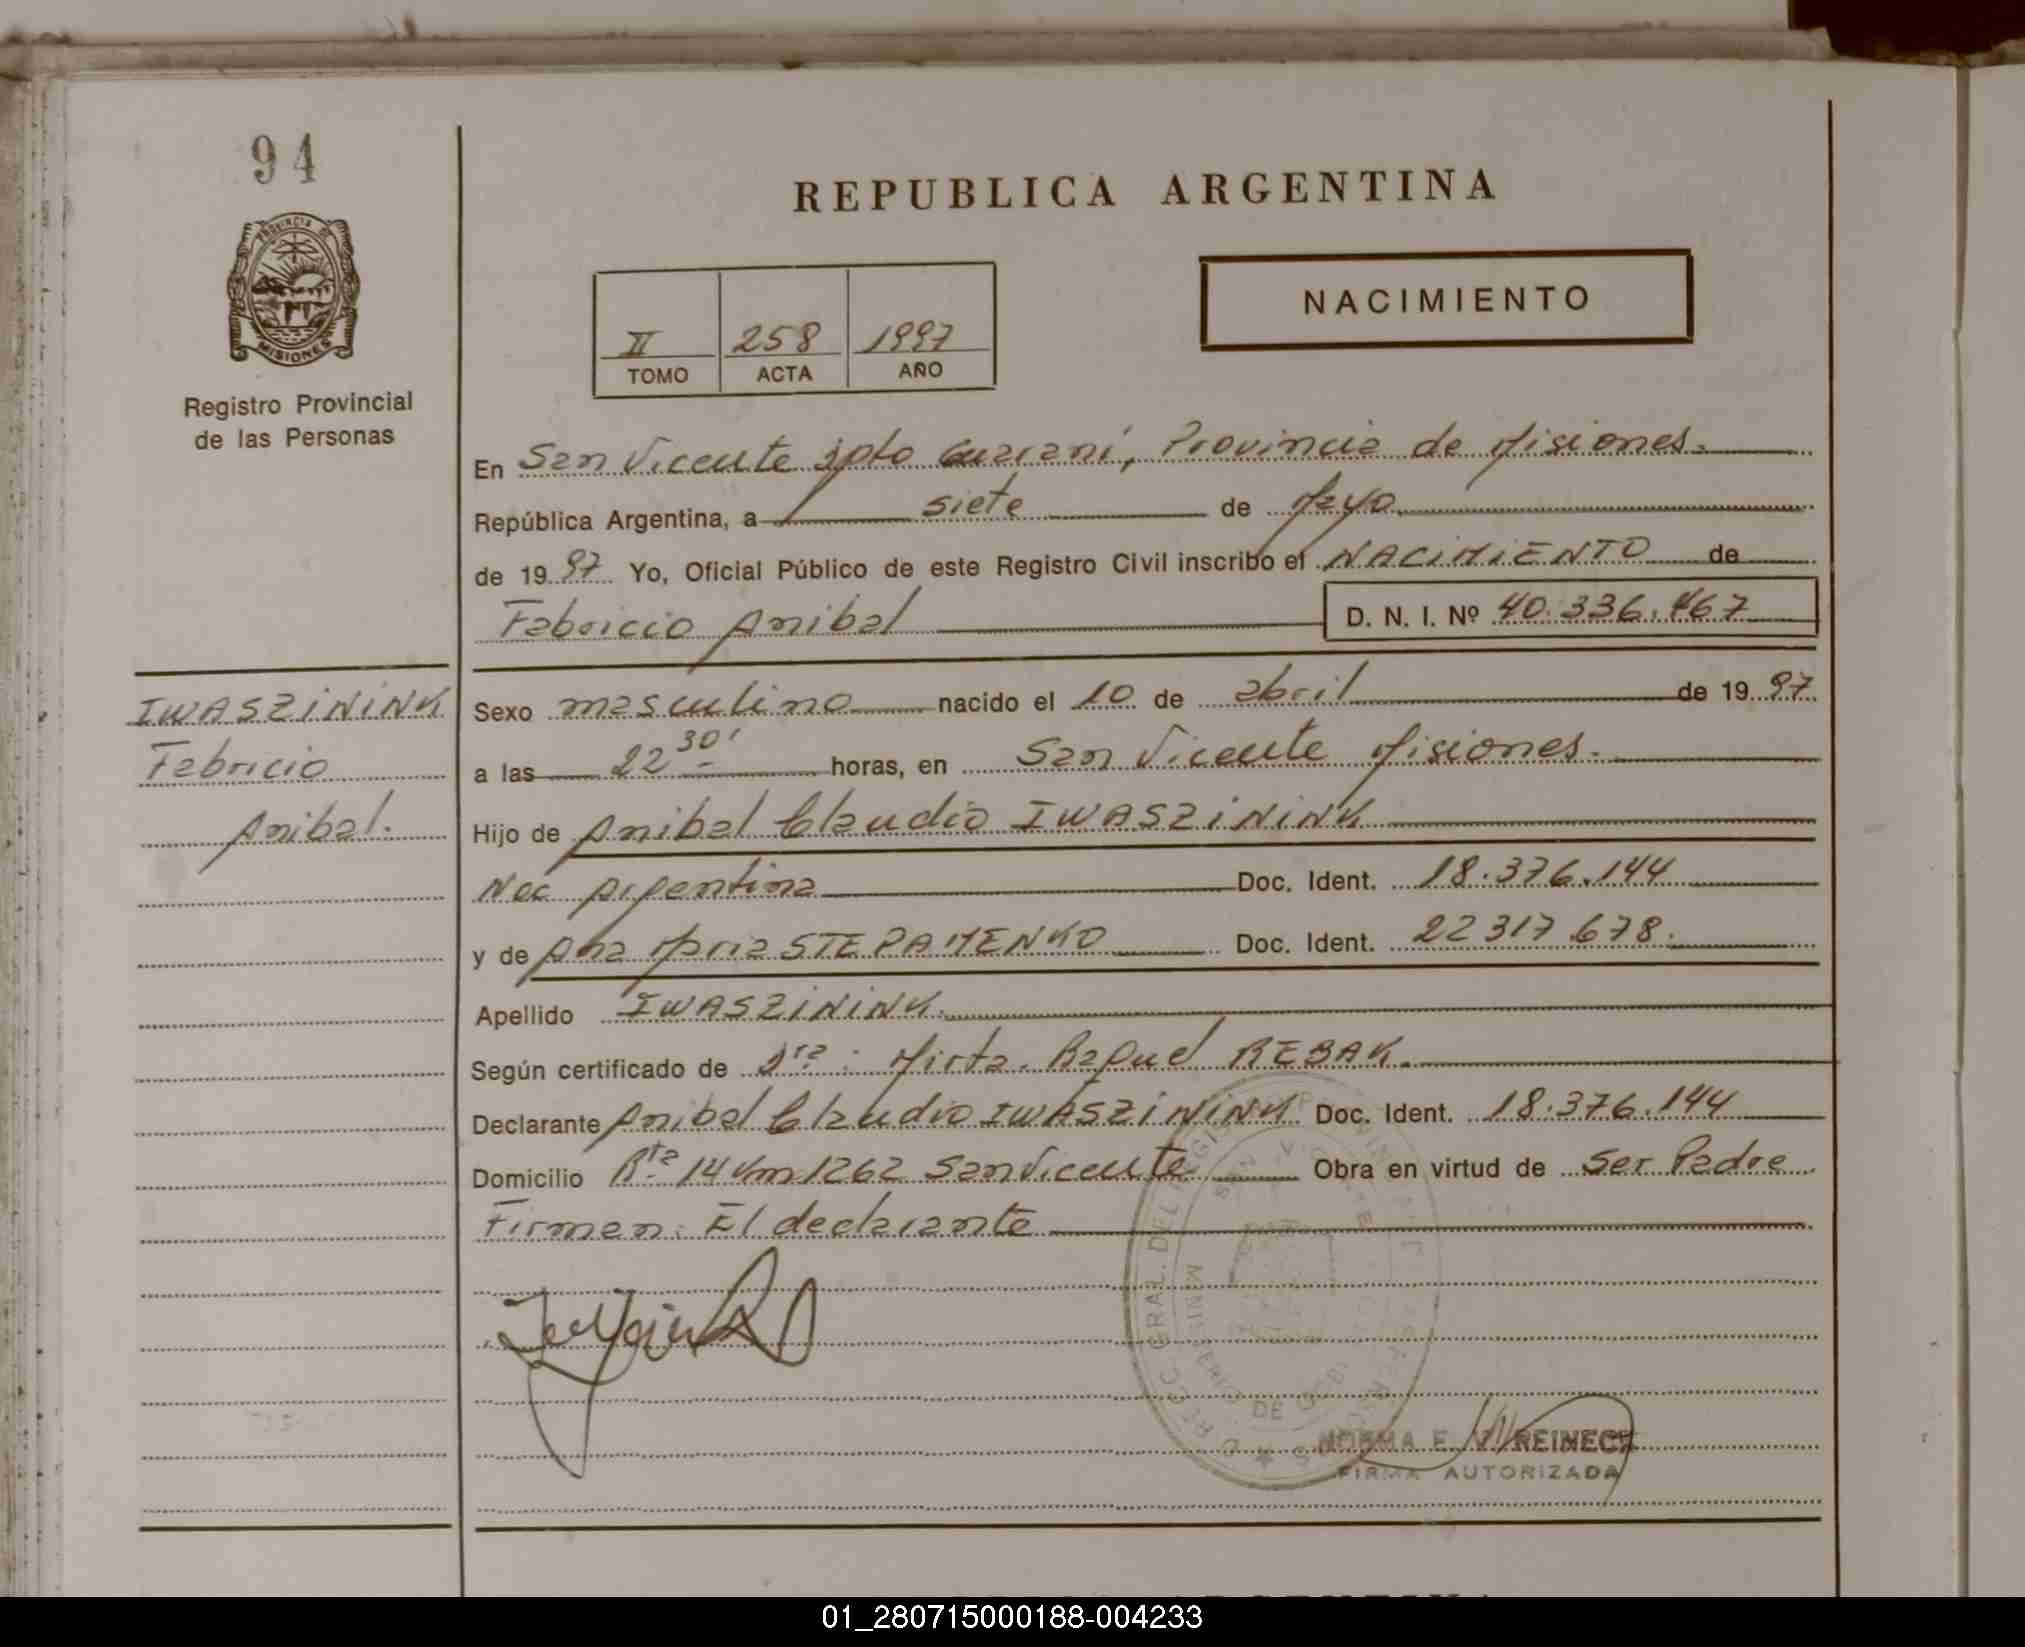 94
REPUBLICA ARGENTINA
PROVINCIA DE
MISIONES
Registro Provincial
de las Personas
NACIMIENTO
II 258 1997
TOMO ACTA AÑO
En San Vicente dpto Guarani, Provincia de Misiones.
República Argentina, a siete de Mayo
de 1997 Yo, Oficial Público de este Registro Civil inscribo el NACIMIENTO de
Fabricio Anibal D. N. I. Nº 40.336.467
IWASZININK
Fabricio
Anibal.
Sexo masculino nacido el 10 de abril de 1997
a las 22 30' horas, en San Vicente Misiones.
Hijo de Anibal Claudio IWASZININK
Nac Argentina Doc. Ident. 18.376.144
y de Ana Maria STEPAMENKO Doc. Ident. 22317.678.
Apellido IWASZININK.
Según certificado de Dra: Mirta. Raquel REBAK.
Declarante Anibal Claudio IWASZININK Doc. Ident. 18.376.144
Domicilio Rta 14 Km 1262 San Vicente Obra en virtud de Ser Padre
Firman: El declarante
GRAL. DEL
DE
NORMA E. V. REINECK
FIRMA AUTORIZADA
01_280715000188-004233